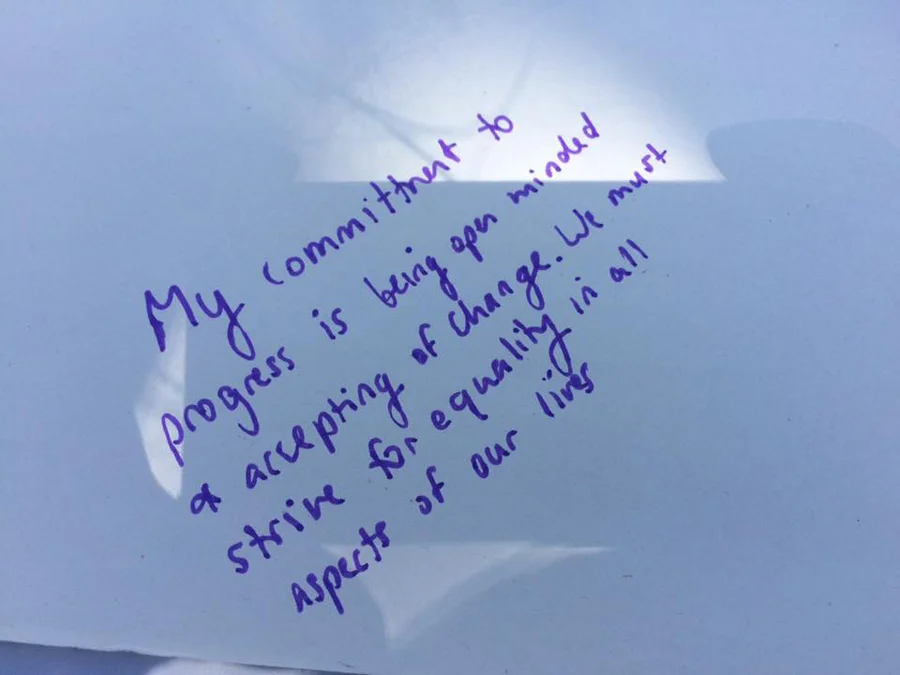 My committment to
progress is being open minded
& accepting of change. We must
strive for equality in all
aspects of our lives